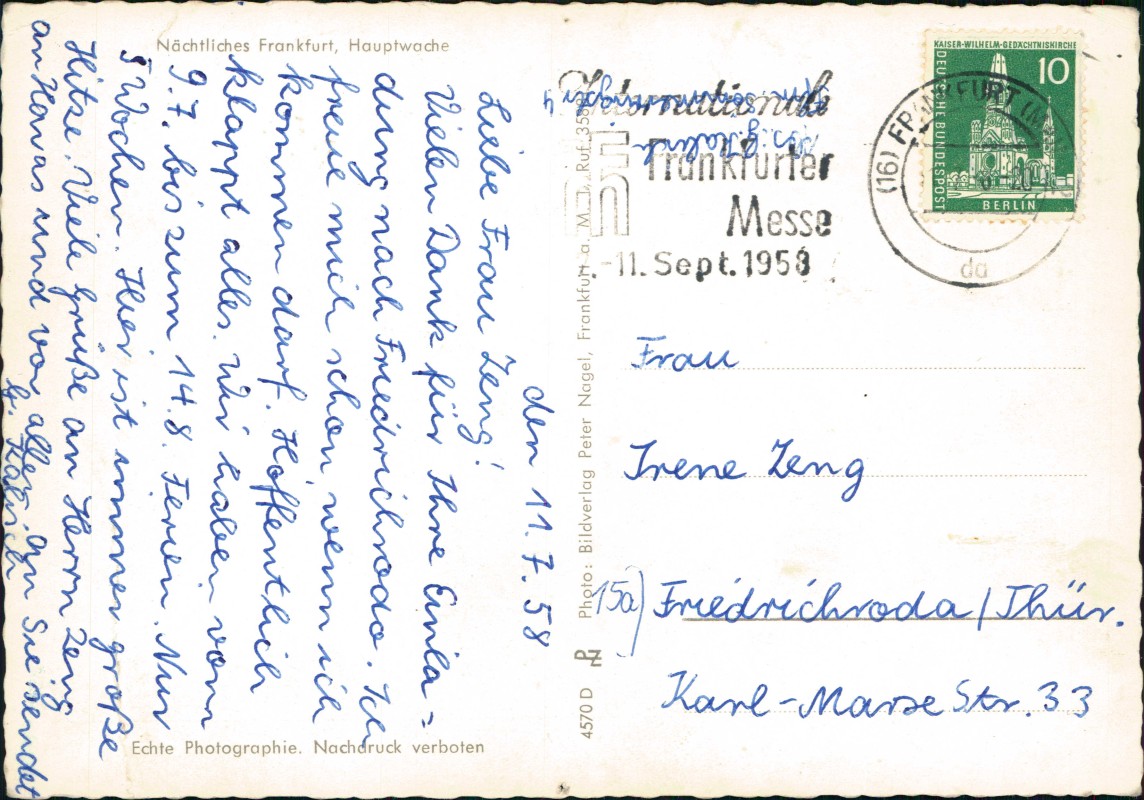 Nächtliches Frankfurt, Hauptwache
den 11.7.58
Liebe Frau Zeng!
Vielen Dank für Ihre Einla=
dung nach Friedrichroda. Ich
freue mich schon, wenn ich
kommen darf. Hoffentlich
klappt alles. Wir haben vom
9.7. bis zum 14.8. Ferien. Nur
5 Wochen. Hier ist immer große
Hitze. Viele Grüße an Herrn Zeng
an Haus und vor allem an Sie sendet
G. Kalisch
Echte Photographie. Nachdruck verboten
4570 D
Photo: Bildverlag Peter Nagel, Frankfurt a. M. 1, Ruf
Internationale
Frankfurter
Messe
-11. Sept. 1958
(16) FRANKFURT (MAIN)
da
KAISER-WILHELM-GEDÄCHTNISKIRCHE
DEUTSCHE BUNDESPOST
10
BERLIN
Frau
Irene Zeng
15a) Friedrichroda/Thür.
Karl-Marxe Str. 33